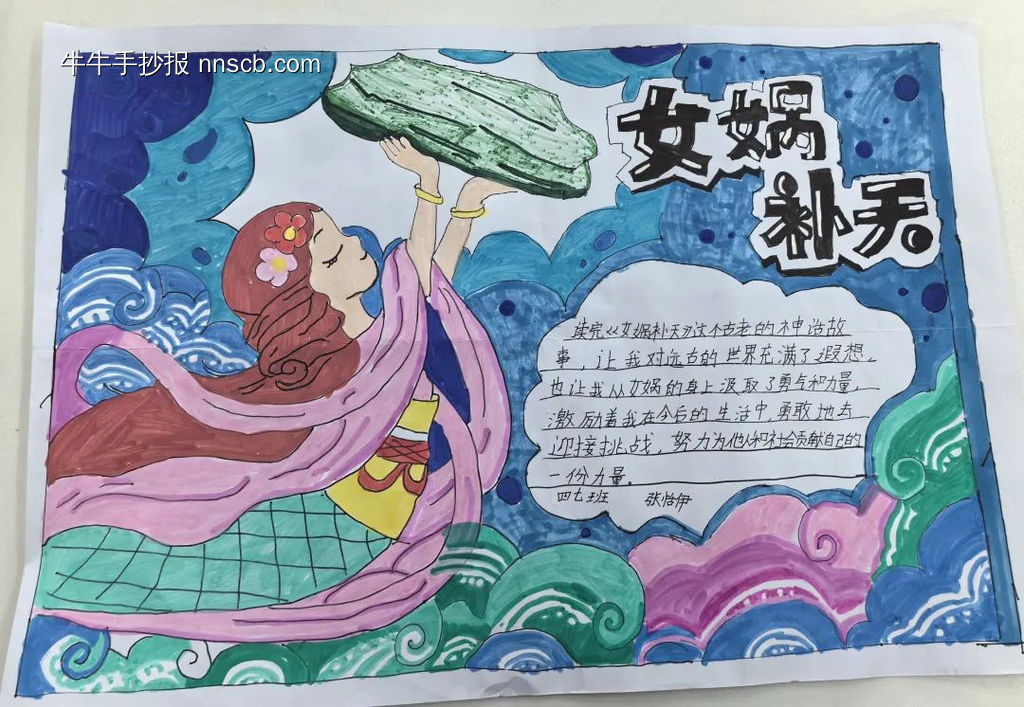 牛牛手抄报 nnscb.com
女娲
补天
读完《女娲补天》这个古老的神话故
事，让我对远古的世界充满了遐想，
也让我从女娲的身上汲取了勇气和力量，
激励着我在今后的生活中，勇敢地去
迎接挑战，努力为他人和社会贡献自己的
一份力量。
四七班 张怡伊